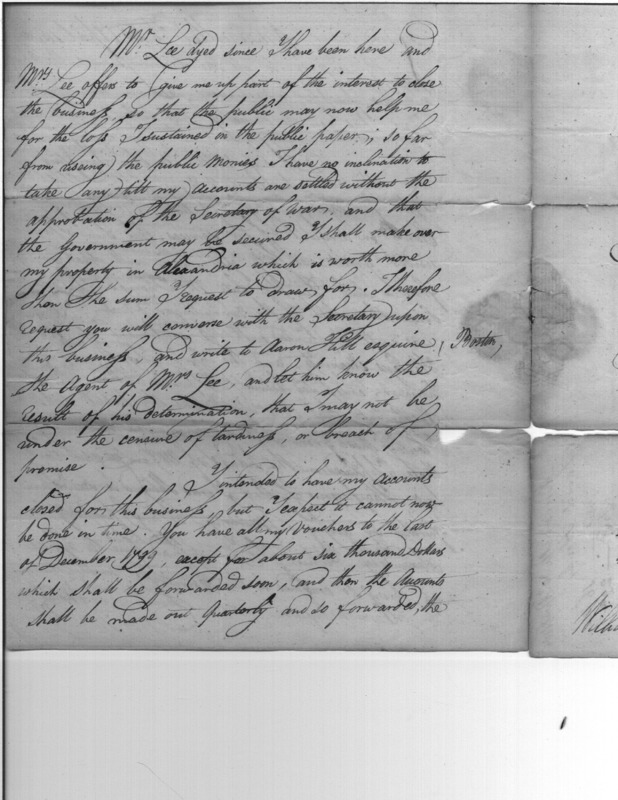 Mr Lee dyed since I have been here and
Mrs Lee offers to give me up part of the interest to close
the business, so that the public may now help me
for the loss I sustained in the public paper; so far
from useing the public monies I have no inclination to
take any till my accounts are settled without the
approbation of the Secretary of War. and that
the Government may be secured I shall make over
my property in Alexandria which is worth more
than the sum I request to draw for. I therefore
request you will converse with the Secretary upon
this business, and write to Aaron Hill esquire, Boston,
the Agent of Mrs Lee, and let him know the
result of his determination, that I may not be
under the censure of tardness, or breach of
promise.
I intended to have my accounts
closed for this business, but I expect it cannot now
be done in time. You have all my Vouchers to the last
of December 1799, except for about six thousand Dollars
which shall be forwarded soon, and then the Accounts
shall be made out Quarterly and so forwarded, the